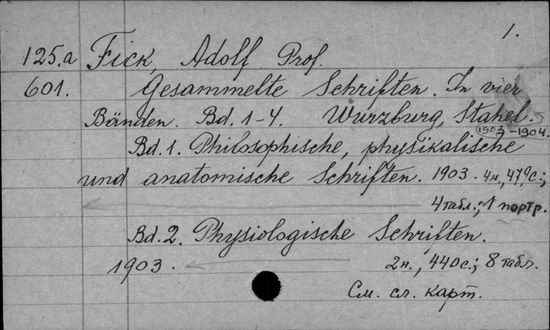 1.
125.a Fick, Adolf Prof.
601. Gesammelte Schriften. In vier
Bänden. Bd. 1-4. Wurzburg, Stahel.
1903-1904.
Bd. 1. Philosophische, physikalische
und anatomische Schriften. 1903. 4н., 479с.;
4 табл.; 1 портр.
Bd. 2. Physiologische Schriften.
1903. 2н., 440с.; 8 табл.
См. сл. карт.